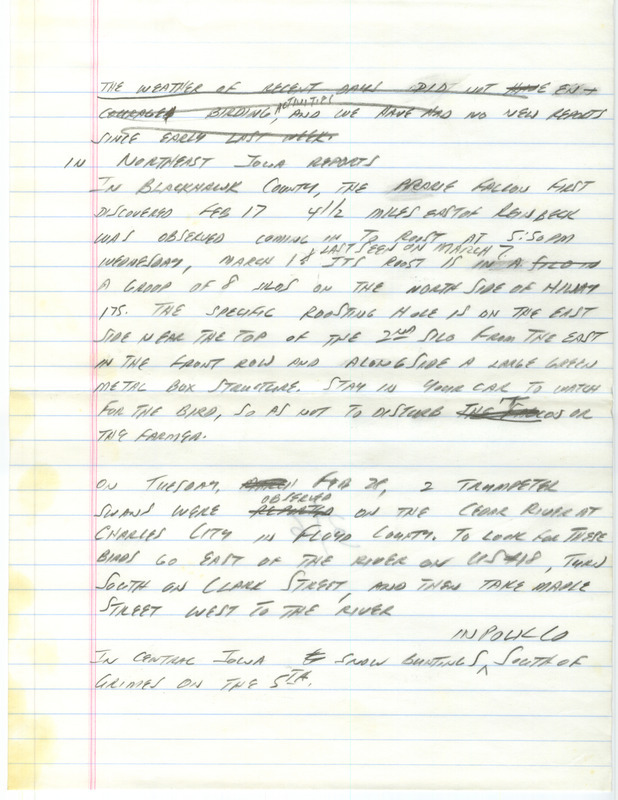 THE WEATHER OF RECENT DAYS DID NOT HAVE EN-
COURAGED BIRDING ACTIVITIES, AND WE HAVE HAD NO NEW REPORTS
SINCE EARLY LAST WEEK.
IN NORTHEAST IOWA REPORTS
IN BLACKHAWK COUNTY, THE PRARIE FALCON FIRST
DISCOVERED FEB 17 4 1/2 MILES EAST OF REINBECK
WAS OBSERVED COMING IN TO ROOST AT 5:50 PM
WEDNESDAY, MARCH 1st & LAST SEEN ON MARCH 7. ITS ROOST IS IN A SILO IN
A GROUP OF 8 SILOS ON THE NORTH SIDE OF HIWAY
175. THE SPECIFIC ROOSTING HOLE IS ON THE EAST
SIDE NEAR THE TOP OF THE 2ND SILO FROM THE EAST
IN THE FRONT ROW AND ALONGSIDE A LARGE GREEN
METAL BOX STRUCTURE. STAY IN YOUR CAR TO WATCH
FOR THE BIRD, SO AS NOT TO DISTURB IT OR
THE FARMER.
ON TUESDAY, MARCH FEB 28, 2 TRUMPETER
SWANS WERE REPORTED OBSERVED ON THE CEDAR RIVER AT
CHARLES CITY IN FLOYD COUNTY. TO LOOK FOR THESE
BIRDS GO EAST OF THE RIVER ON US #18, TURN
SOUTH ON CLARK STREET, AND THEN TAKE MAPLE
STREET WEST TO THE RIVER
IN CENTRAL IOWA SNOW BUNTINGS IN POLK CO SOUTH OF
GRIMES ON THE 5TH.